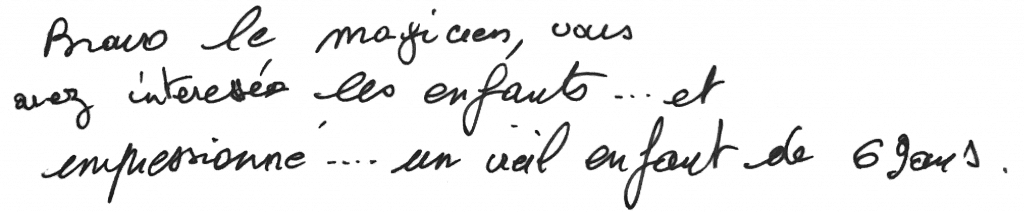 Bravo le magicien, vous
avez interessée les enfants... et
impressionné.... un vieil enfant de 69 ans.